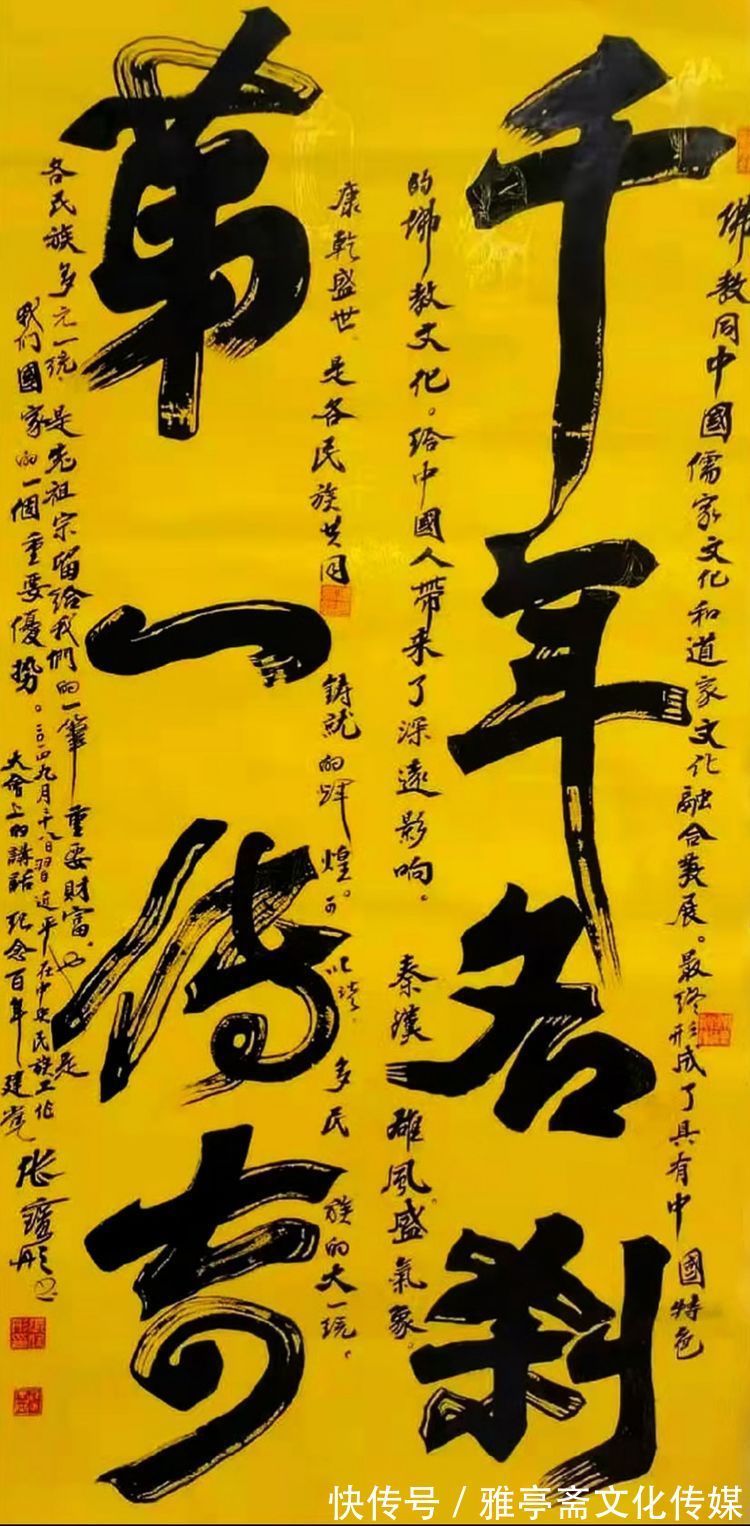 千年名刹
第一传奇
佛教同中國儒家文化和道家文化融合發展。最终形成了具有中國特色
的佛教文化。给中國人带来了深遠影响。秦漢雄風。盛氣象。
康乾盛世、是各民族共同铸就的辉煌。可以说、多民族的大一统、
各民族多元一统、是先祖宗留给我們的一筆重要財富、也是
我们國家的一個重要優势。二〇一四九月二十八日習近平在中央民族工作
大會上的講話 纪念百年建党
快传号 / 雅亭斋文化传媒